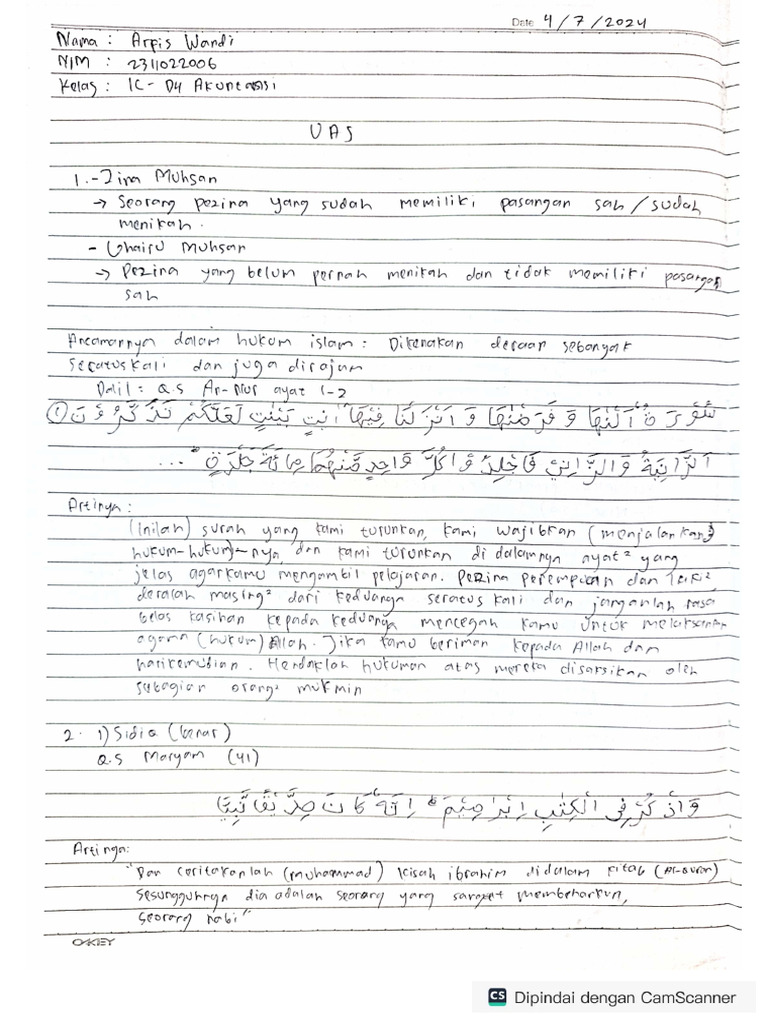 Date 4/7/2024
Nama : Arpis Wandi
NIM : 2311022006
Kelas : 1C - D4 Akuntansi
UAS
1. - Zina Muhsan
→ Seorang pezina yang sudah memiliki pasangan sah / sudah
menikah.
- Ghairu Muhsan
→ Pezina yang belum pernah menikah dan tidak memiliki pasangan
sah
Ancamannya dalam hukum islam : Dikenakan deraan sebanyak
seratus kali dan juga dirajam
Dalil : Q.S An-Nur ayat 1-2
سُوْرَةٌ اَنْزَلْنٰهَا وَفَرَضْنٰهَا وَاَنْزَلْنَا فِيْهَآ اٰيٰتٍ بَيِّنٰتٍ لَّعَلَّكُمْ تَذَكَّرُوْنَ ①
اَلزَّانِيَةُ وَالزَّانِيْ فَاجْلِدُوْا كُلَّ وَاحِدٍ مِّنْهُمَا مِائَةَ جَلْدَةٍ ...
Artinya :
(Inilah) surah yang kami turunkan, kami wajibkan (menjalankan)
hukum-hukum)-nya, dan kami turunkan di dalamnya ayat² yang
jelas agar kamu mengambil pelajaran. Pezina perempuan dan laki²
deralah masing² dari keduanya seratus kali dan janganlah rasa
belas kasihan kepada keduanya mencegah kamu untuk melaksanakan
agama (hukum) Allah. Jika kamu beriman kepada Allah dan
hari kemudian. Hendaklah hukuman atas mereka disaksikan oleh
sebagian orang² mukmin
2. 1) Sidiq (benar)
Q.S Maryam (41)
وَاذْكُرْ فِى الْكِتٰبِ اِبْرٰهِيْمَ ۗ اِنَّهٗ كَانَ صِدِّيْقًا نَّبِيًّا
Artinya:
"Dan ceritakanlah (muhammad) kisah ibrahim didalam kitab (Al-Quran)
Sesungguhnya dia adalah seorang yang sangat membenarkan,
seorang nabi"
OKEY
CS Dipindai dengan CamScanner